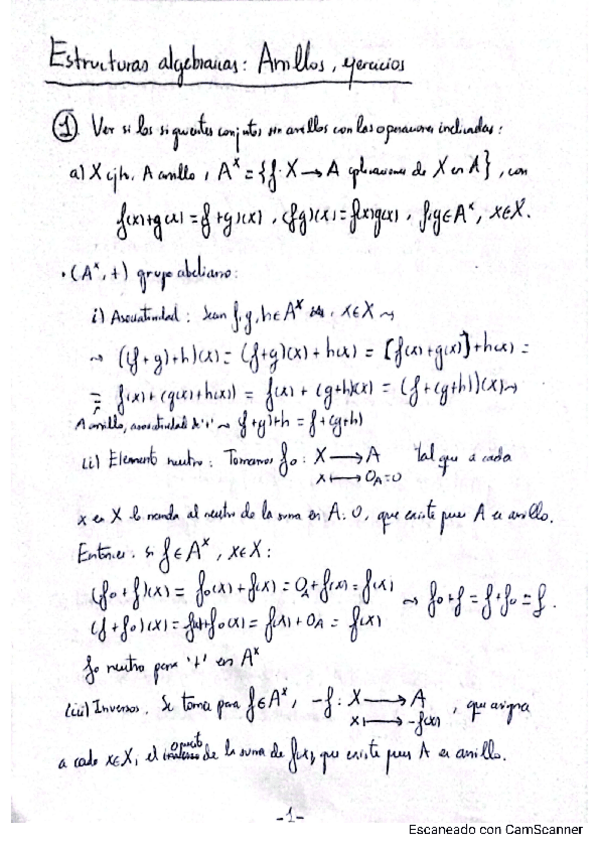 Estructuras algebraicas: Anillos, ejercicios
① Ver si los siguientes conjuntos son anillos con las operaciones indicadas:
a) X cjto. A anillo, A^X = {f: X → A aplicaciones de X en A}, con
f(x)+g(x) = (f+g)(x), (fg)(x) = f(x)g(x), f,g ∈ A^X, x ∈ X.
· (A^X, +) grupo abeliano:
i) Asociatividad: Sean f, g, h ∈ A^X, x ∈ X ⤳
⤳ ((f+g)+h)(x) = (f+g)(x) + h(x) = [f(x)+g(x)]+h(x) =
= f(x)+(g(x)+h(x)) = f(x) + (g+h)(x) = (f+(g+h))(x) ⤳
A anillo, asociatividad de '+' ⤳ (f+g)+h = f+(g+h)
ii) Elemento neutro: Tomamos f₀: X → A tal que a cada
x ↦ 0_A = 0
x en X le manda al neutro de la suma en A: 0, que existe pues A es anillo.
Entonces, si f ∈ A^X, x ∈ X:
(f₀+f)(x) = f₀(x) + f(x) = 0_A + f(x) = f(x)
(f+f₀)(x) = f(x)+f₀(x) = f(x) + 0_A = f(x) ⤳ f₀+f = f+f₀ = f.
f₀ neutro para '+' en A^X
iii) Inversos. Se toma para f ∈ A^X, -f: X → A, que asigna
x ↦ -f(x)
opuesto
a cada x ∈ X, el inverso de la suma de f(x), que existe pues A es anillo.
-1-
Escaneado con CamScanner